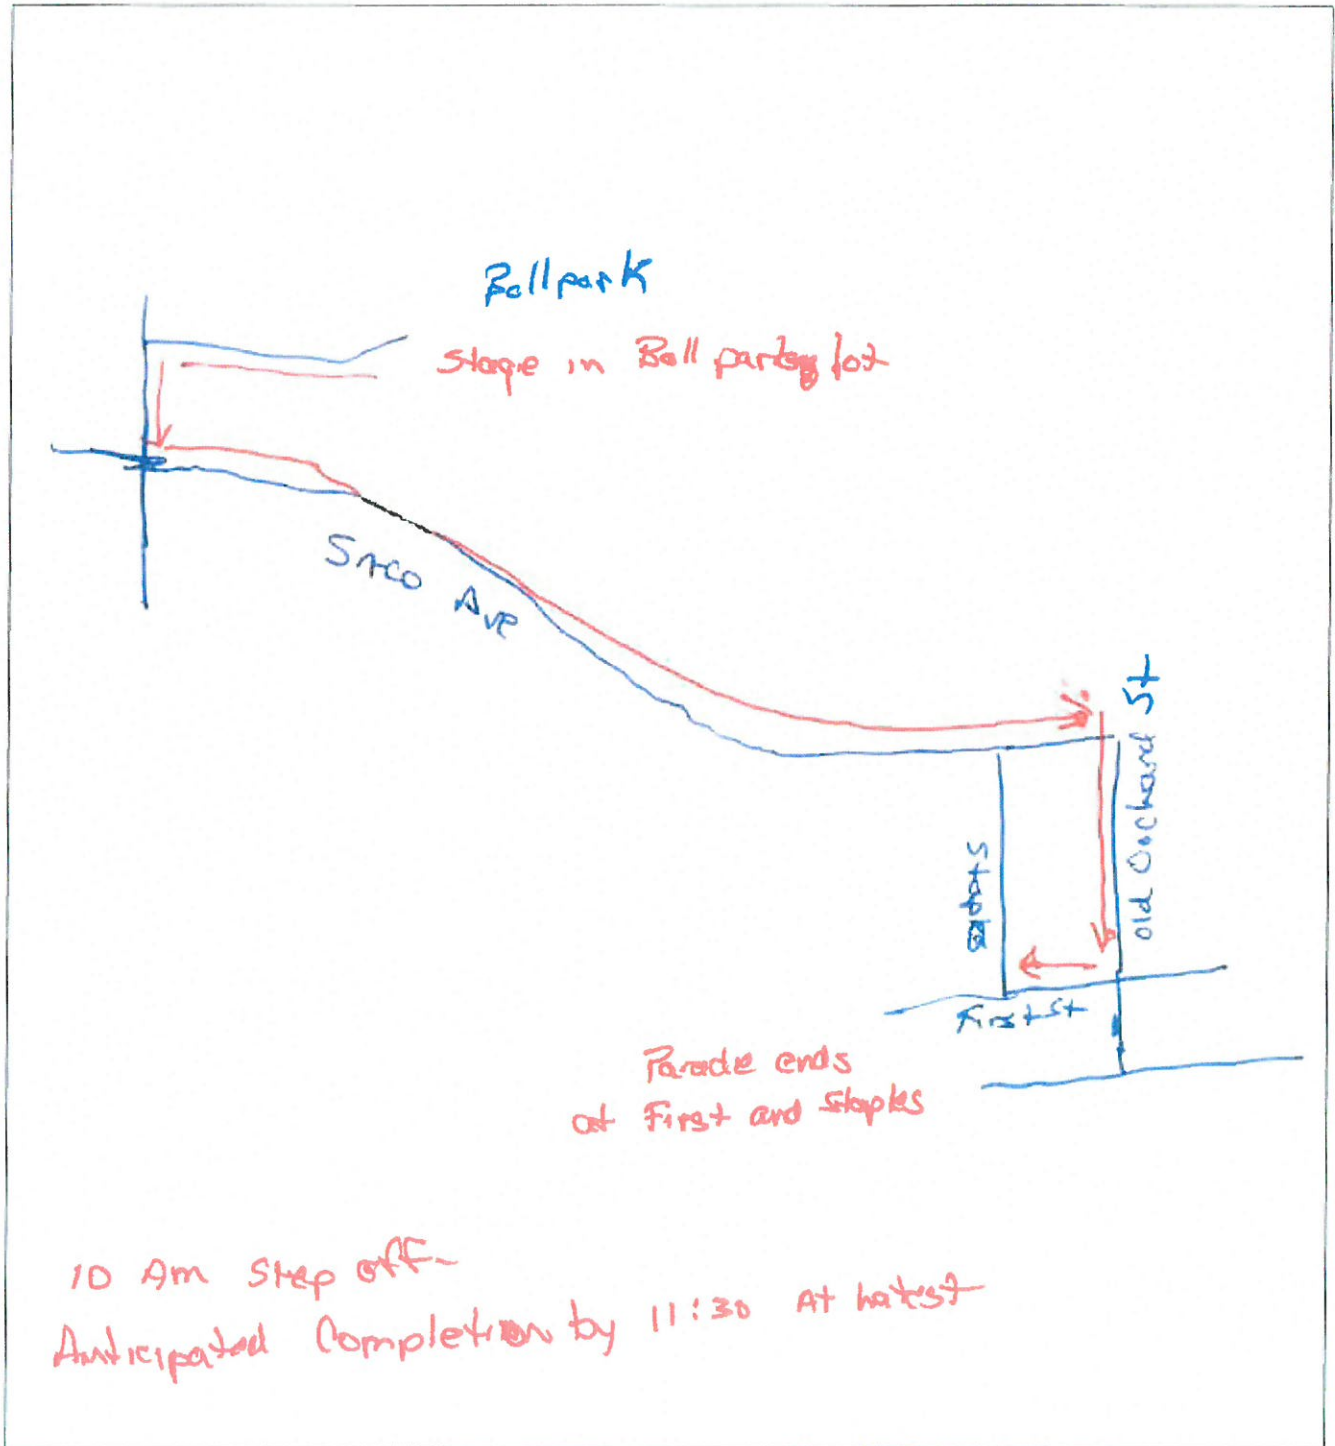 Ballpark
Stage in Ball parking lot
Saco Ave
Old Orchard St
Staples
First St
Parade ends
at First and Staples
10 Am Step off-
Anticipated Completion by 11:30 At Latest